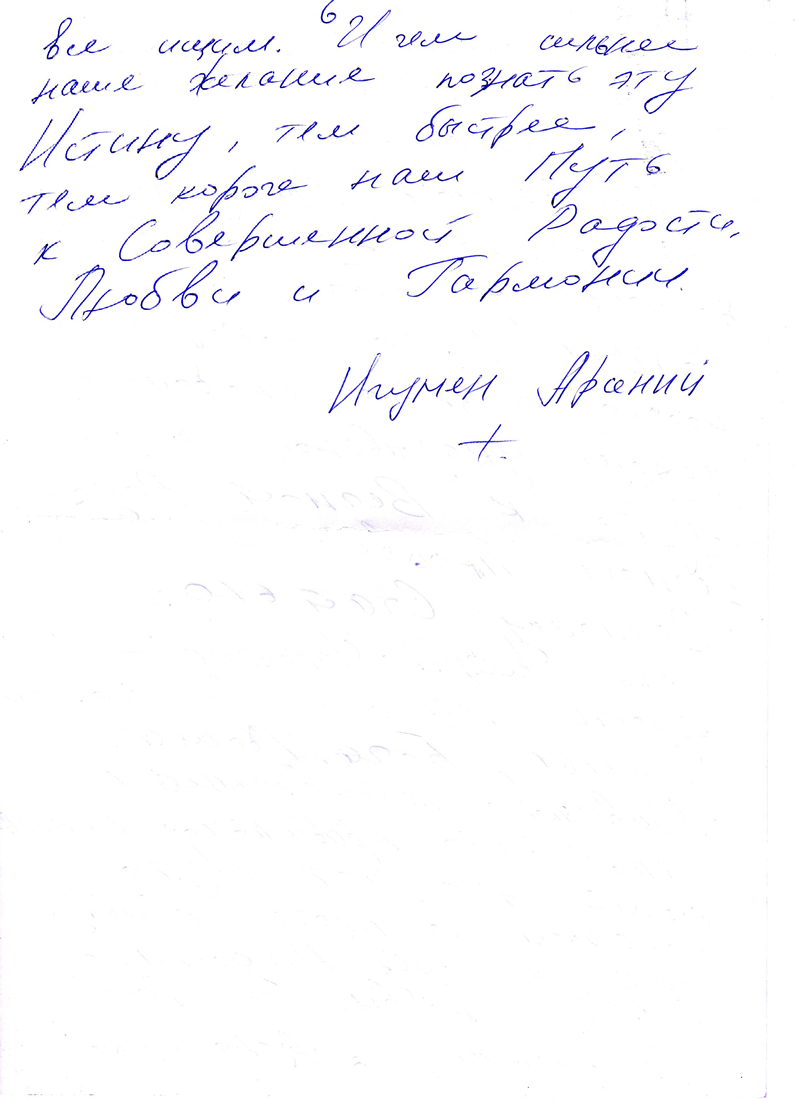 6
все ищем. И чем сильнее
наше желание познать эту
Истину, тем быстрее,
тем короче наш Путь
к Совершенной Радости,
Любви и Гармонии.
Игумен
+.